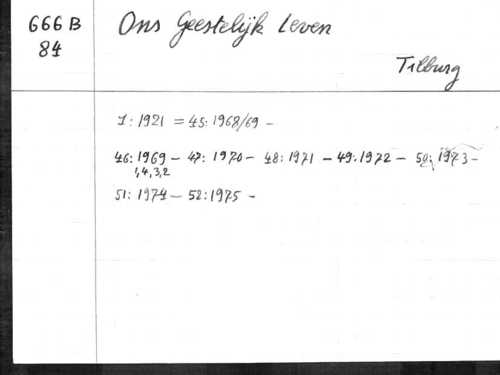 666 B
84
Ons Geestelijk Leven
Tilburg
1: 1921 = 45: 1968/69 -
46: 1969 - 47: 1970 - 48: 1971 - 49: 1972 - 50: 1973 -
1, 4, 3, 2
51: 1974 - 52: 1975 -